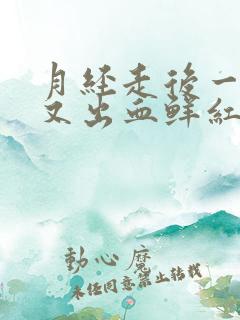 月经走后一
又出血鲜红
動心魔
未经同意禁止转载